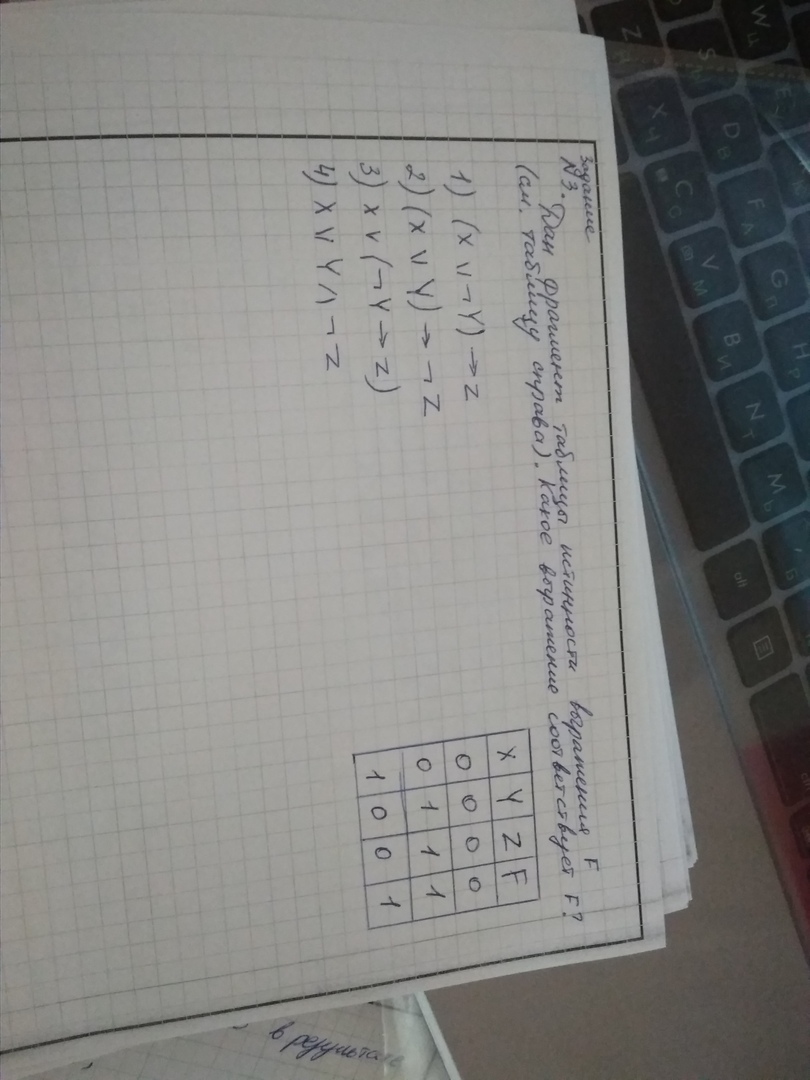 Задание
№3. Дан фрагмент таблицы истинности выражения F
(см. таблицу справа). Какое выражение соответствует F?
1) (X ∨ ¬Y) → Z
2) (X ∨ Y) → ¬Z
3) X ∨ (¬Y → Z)
4) X ∨ Y ∧ ¬Z
X Y Z F
0 0 0 0
0 1 1 1
1 0 0 1
в результате
W Ц
Z Я
S
X Ч
D В
E
C С
F А
V М
G П
B И
H Р
N Т
M Ь
alt